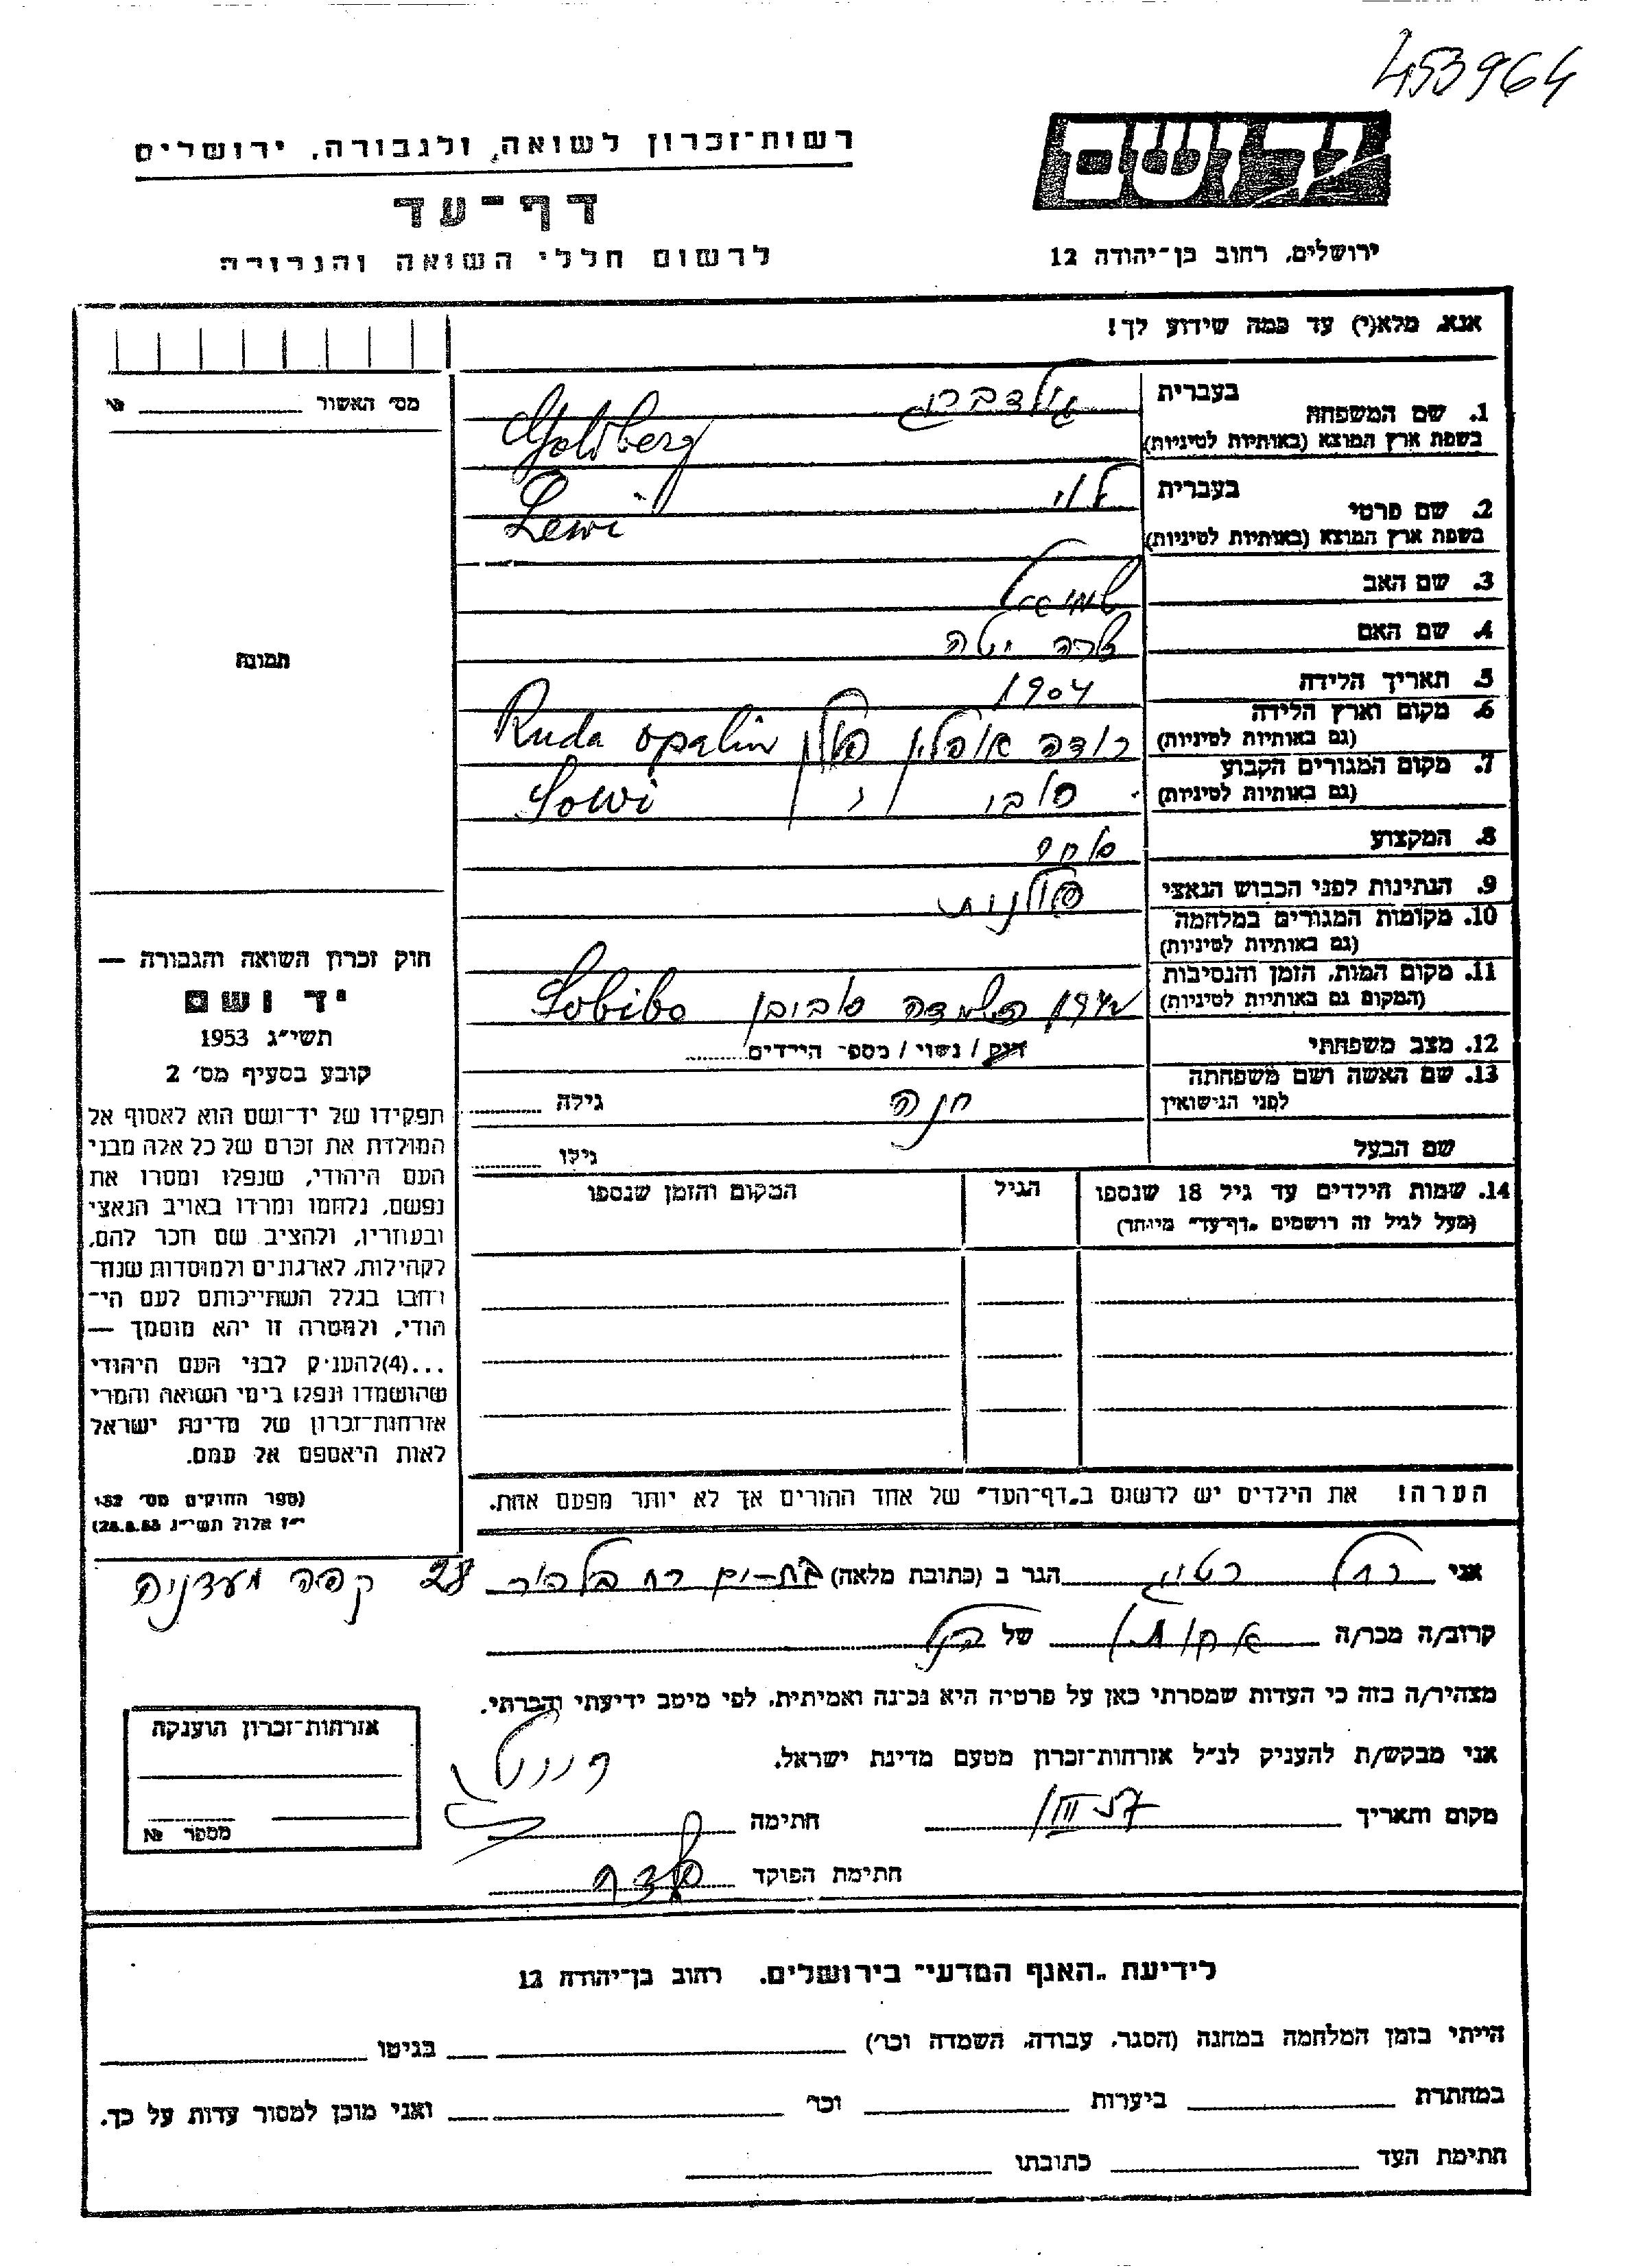 453964
רשות־זכרון לשואה, ולגבורה, ירושלים
דף־עד
לרשום חללי השואה והגבורה
יד ושם
ירושלים, רחוב בן־יהודה 12
אנא, מלא(י) עד כמה שידוע לך!
מס׳ האשור №
1. שם המשפחה בעברית גולדברג
בשפת ארץ המוצא (באותיות לטיניות) Goldberg
2. שם פרטי בעברית לוי
בשפת ארץ המוצא (באותיות לטיניות) Lewi
3. שם האב שמואל
4. שם האם שרה יטה
5. תאריך הלידה 1904
6. מקום וארץ הלידה
(גם באותיות לטיניות) רודה אופלין פולין Ruda opalin
7. מקום המגורים הקבוע
(גם באותיות לטיניות) Sowi
8. המקצוע סוחר
9. הנתינות לפני הכבוש הנאצי פולנית
10. מקומות המגורים במלחמה
(גם באותיות לטיניות)
11. מקום המות, הזמן והנסיבות
(המקום גם באותיות לטיניות) השמדה סוביבו Sobibo
12. מצב משפחתי רווק / נשוי / מספר הילדים
13. שם האשה ושם משפחתה
לפני הנישואין חנה גילה
שם הבעל גילו
14. שמות הילדים עד גיל 18 שנספו הגיל המקום והזמן שנספו
(מעל לגיל זה רושמים „דף־עד״ מיוחד)
הערה! את הילדים יש לרשום ב„דף־העד״ של אחד ההורים אך לא יותר מפעם אחת.
תמונה
חוק זכרון השואה והגבורה —
יד ושם
תשי״ג 1953
קובע בסעיף מס׳ 2
תפקידו של יד־ושם הוא לאסוף אל
המולדת את זכרם של כל אלה מבני
העם היהודי, שנפלו ומסרו את
נפשם, נלחמו ומרדו באויב הנאצי
ובעוזריו, ולהציב שם וזכר להם,
לקהילות, לארגונים ולמוסדות שנח־
רבו בגלל השתייכותם לעם הי־
הודי, ולמטרה זו יהא מוסמך —
...(4)להעניק לבני העם היהודי
שהושמדו ונפלו בימי השואה והמרי
אזרחות־זכרון של מדינת ישראל
לאות היאספם אל עמם.
(ספר החוקים מס׳ 132
י״ז אלול תשי״ג 28.8.53)
אני רחל הגר ב (כתובת מלאה) בת־ים רח 28 קפה מעדנים
קרוב/ה מכר/ה אחותו של הנ״ל
מצהיר/ה בזה כי העדות שמסרתי כאן על פרטיה היא נכונה ואמיתית, לפי מיטב ידיעתי והכרתי.
אני מבקש/ת להעניק לנ״ל אזרחות־זכרון מטעם מדינת ישראל.
מקום ותאריך 57 III 1 חתימה
חתימת הפוקד
אזרחות־זכרון הוענקה
מספר №
לידיעת „האגף המדעי״ בירושלים, רחוב בן־יהודה 12
הייתי בזמן המלחמה במחנה (הסגר, עבודה, השמדה וכו׳) בגיטו
במחתרת ביערות וכו׳ ואני מוכן למסור עדות על כך.
חתימת העד כתובתו